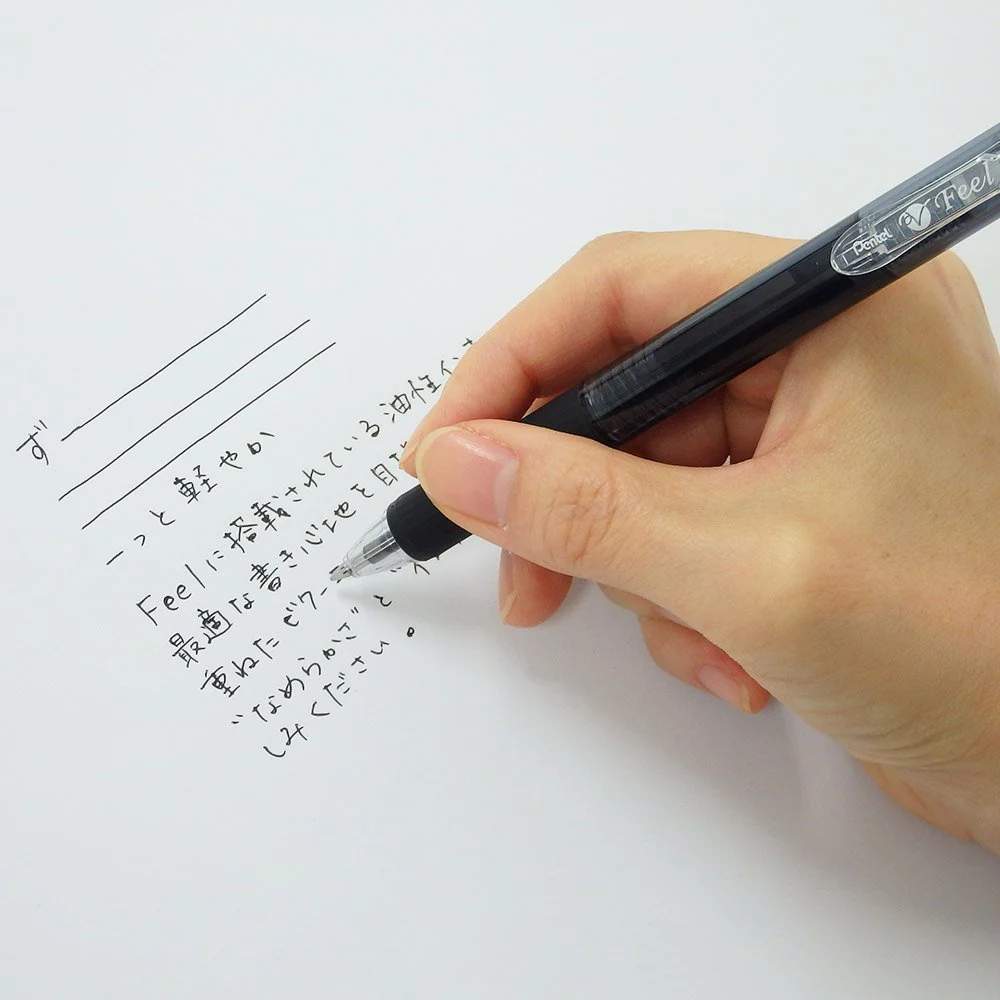 ず
ーっと軽やか
Feelに搭載されている油性イン
最適な書き心地を目指
重ねた ビワー
"なめらかさ"と"
しみください。
Pentel Feel